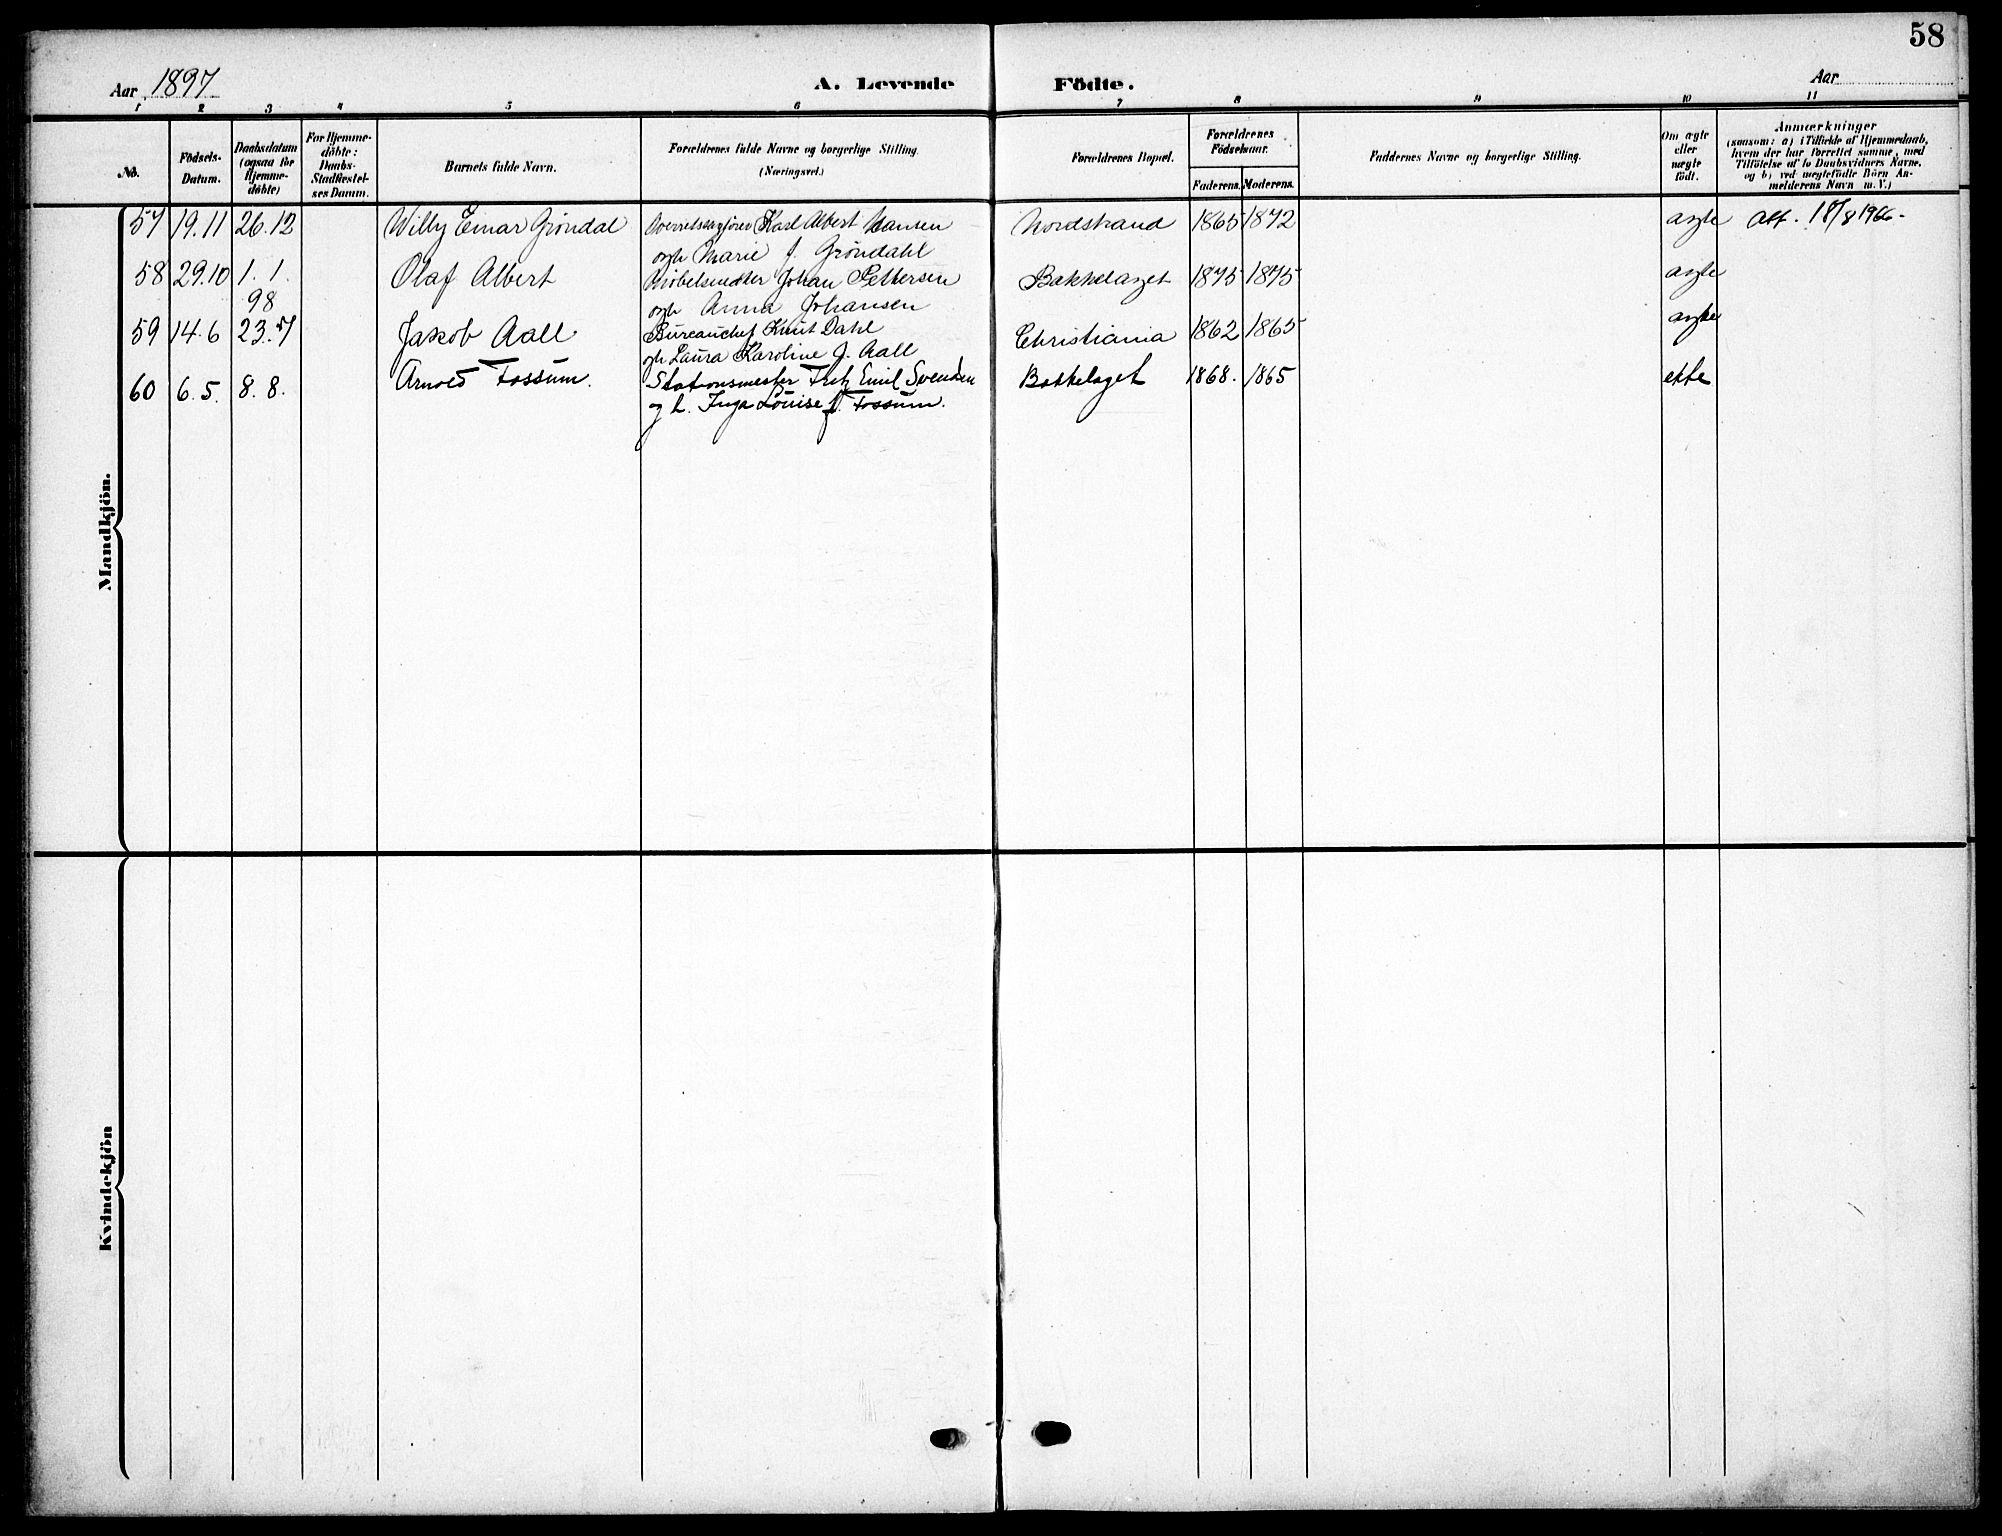 58
Aar 1897
A. Levende Födte.
Aar
1 2 3 4 5 6 7 8 9 10 11
No.
Födsels-
Datum.
Daabsdatum
(ogsaa for
Hjemme-
döbte)
For Hjemme-
döbte:
Daabs-
Stadfæstel-
ses Datum.
Barnets fulde Navn.
Forældrenes fulde Navne og borgerlige Stilling.
(Næringsvei.)
Forældrenes Bopæl.
Forældrenes
Födselsaar.
Faderens. Moderens.
Faddernes Navne og borgerlige Stilling.
Om ægte
eller
uægte
födt.
Anmærkninger
(saasom: a) i Tilfælde af Hjemmedaab,
hvem der har forrettet samme, med
Tilföielse af to Daabsvidners Navne,
og b) ved uægtefödte Börn An-
melderens Navn m. V.)
Mandkjön.
57 19.11 26.12 Willy Einar Gröndal Overretssagförer Karl Albert Hansen Nordstrand 1865 1872 ægte Att. 18/8 1966-
ogh Marie f. Gröndahl
58 29.10 1.1. Olaf Albert Möbelsnedker Johan Pettersen Bækkelaget 1875 1875 ægte
98 ogh Anna Johansen
59 14.6 23.7 Jakob Aall Bureauchef Knut Dahl Christiania 1862 1865 ægte
ogh Laura Karoline f. Aall
60 6.5. 8.8. Arnold Fossum. Stationsmester Fritz Emil Svendsen Bækkelaget 1868. 1865 ekte
og h. Inga Louise f. Fossum.
Kvindekjön